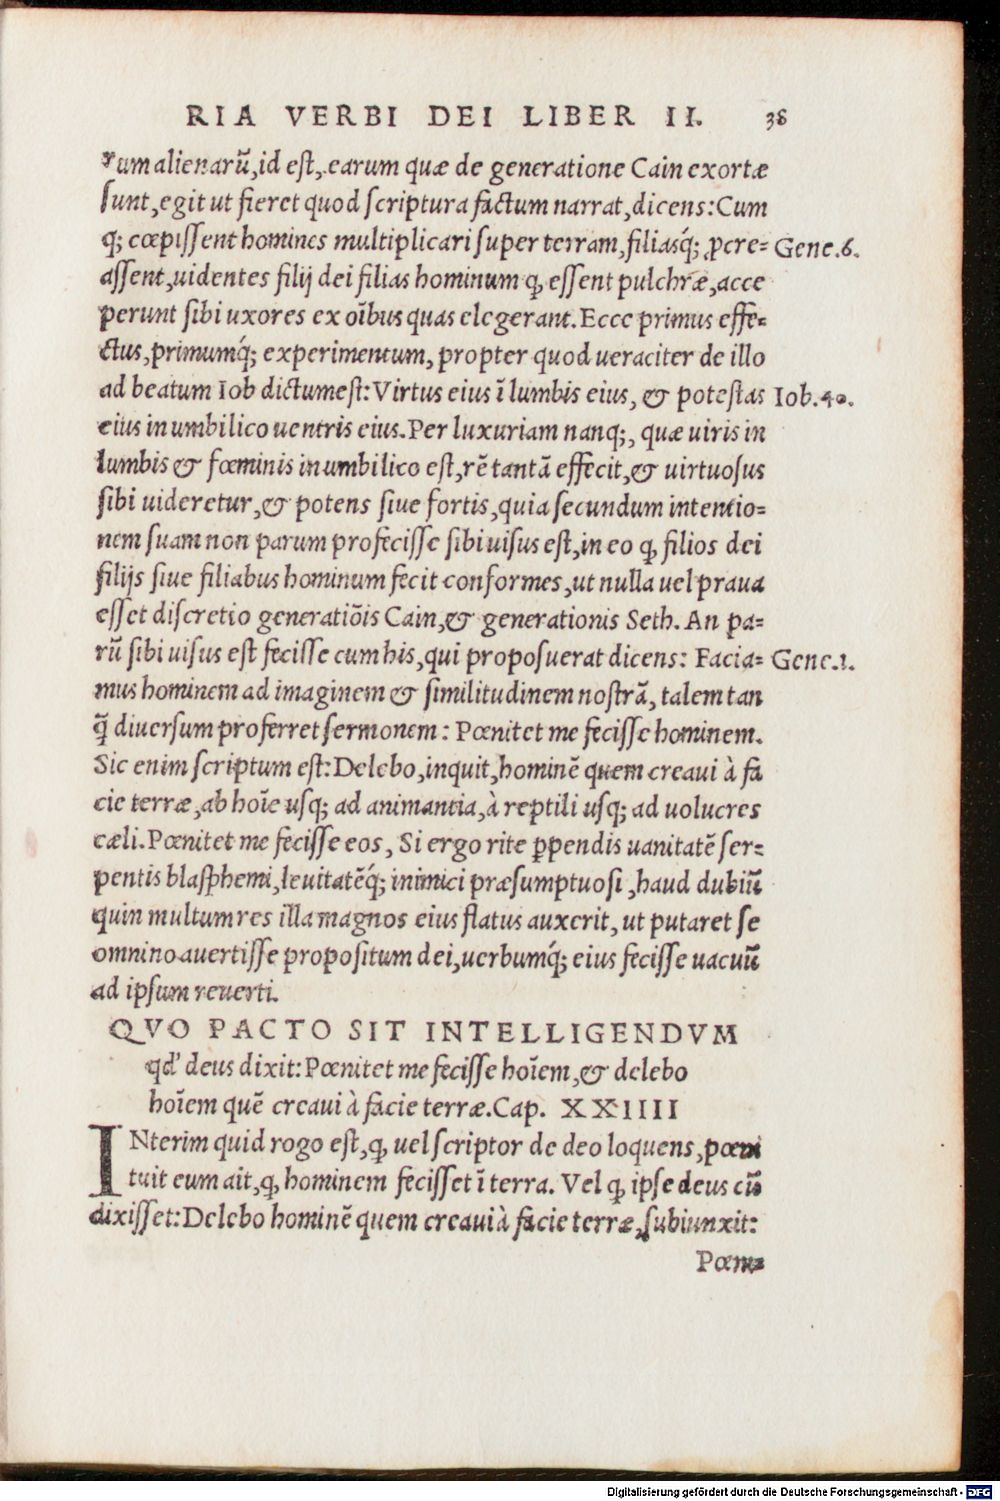 RIA VERBI DEI LIBER II. 38
rum alienarū, id est, earum quæ de generatione Cain exortæ
sunt, egit ut fieret quod scriptura factum narrat, dicens: Cum
q; cœpissent homines multiplicari super terram, filiasq́; ꝓcre= Gene.6.
assent, uidentes filij dei filias hominum ꝙ essent pulchræ, acce
perunt sibi uxores ex oībus quas elegerant. Ecce primus effe=
ctus, primumq́; experimentum, propter quod ueraciter de illo
ad beatum Iob dictum est: Virtus eius ī lumbis eius, & potestas Iob.40.
eius in umbilico uentris eius. Per luxuriam nanq;, quæ uiris in
lumbis & fœminis in umbilico est, rē tantā effecit, & uirtuosus
sibi uideretur, & potens siue fortis, quia secundum intentio=
nem suam non parum profecisse sibi uisus est, in eo ꝙ filios dei
filijs siue filiabus hominum fecit conformes, ut nulla uel praua
esset discretio generatiōis Cain, & generationis Seth. An pa=
rū sibi uisus est fecisse cum his, qui proposuerat dicens: Facia= Gene.1.
mus hominem ad imaginem & similitudinem nostrā, talem tan
q̃ diuersum proferret sermonem: Pœnitet me fecisse hominem.
Sic enim scriptum est: Delebo, inquit, hominē quem creaui à fa
cie terræ, ab hoīe usq; ad animantia, à reptili usq; ad uolucres
cæli. Pœnitet me fecisse eos, Si ergo rite ꝑpendis uanitatē ser=
pentis blasphemi, leuitatēq́; inimici præsumptuosi, haud dubiū
quin multum res illa magnos eius flatus auxerit, ut putaret se
omnino auertisse propositum dei, uerbumq́; eius fecisse uacuū
ad ipsum reuerti.
QVO PACTO SIT INTELLIGENDVM
qd' deus dixit: Pœnitet me fecisse hoīem, & delebo
hoīem quē creaui à facie terræ. Cap. XXIIII
INterim quid rogo est, ꝙ uel scriptor de deo loquens, pœni
tuit eum ait, ꝙ hominem fecisset ī terra. Vel ꝙ ipse deus cū
dixisset: Delebo hominē quem creaui à facie terræ, subiunxit:
Pœni=
Digitalisierung gefördert durch die Deutsche Forschungsgemeinschaft - DFG